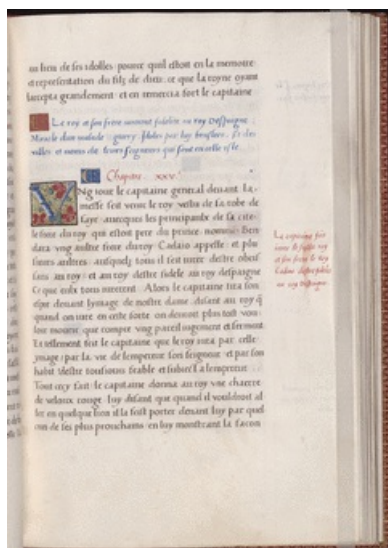 au lieu de ses idolles pource quil estoit en la memoire
et representation du filz de dieu ce que la royne ayant
laccepta grandement et en remercia fort le capitaine
Le roy et son frere nomment fidelite au roy Despaigne
malade guery ydoles par luy bruslees et des
villes et noms de leurs seigneurs que sont en celle isle
Chapitre xxv.
VNg iour le capitaine general deuant la
messe feit venir le roy vestu de sa robe de
saye auecques les principaulx de sa cite
le frere du roy qui estoit pere du prince nomme Ben
dara vng aultre frere du roy Cadaio appelle et plu
sieurs aultres ausquelz tous il feit iurer destre obeis
sans au roy et au roy destre fidele au roy despaigne
Ce que eulx tous iurerent Alors le capitaine tira son
espee deuant lymage de nostre dame disant au roy q
quand on iure en ceste sorte on deuoit plus tost vou
loir mourir que rompre vng pareil iugement et serment
Et tellement feit le capitaine que le roy iura par celle
ymage par la vie de lempereur son seigneur et par son
habit destre tousiours feable et subiect a lempereur
Tout cecy fait le capitaine donna au roy vne chaiere
de veloux rouge luy disant que quand il vouldroit al
ler en quelque lieu il la feist porter deuant luy par quel
cun de ses plus prouchains en luy monstrant la facon
Le capitaine feit
iurer le roy
et son frere le roy
destre feables
au roy despaigne